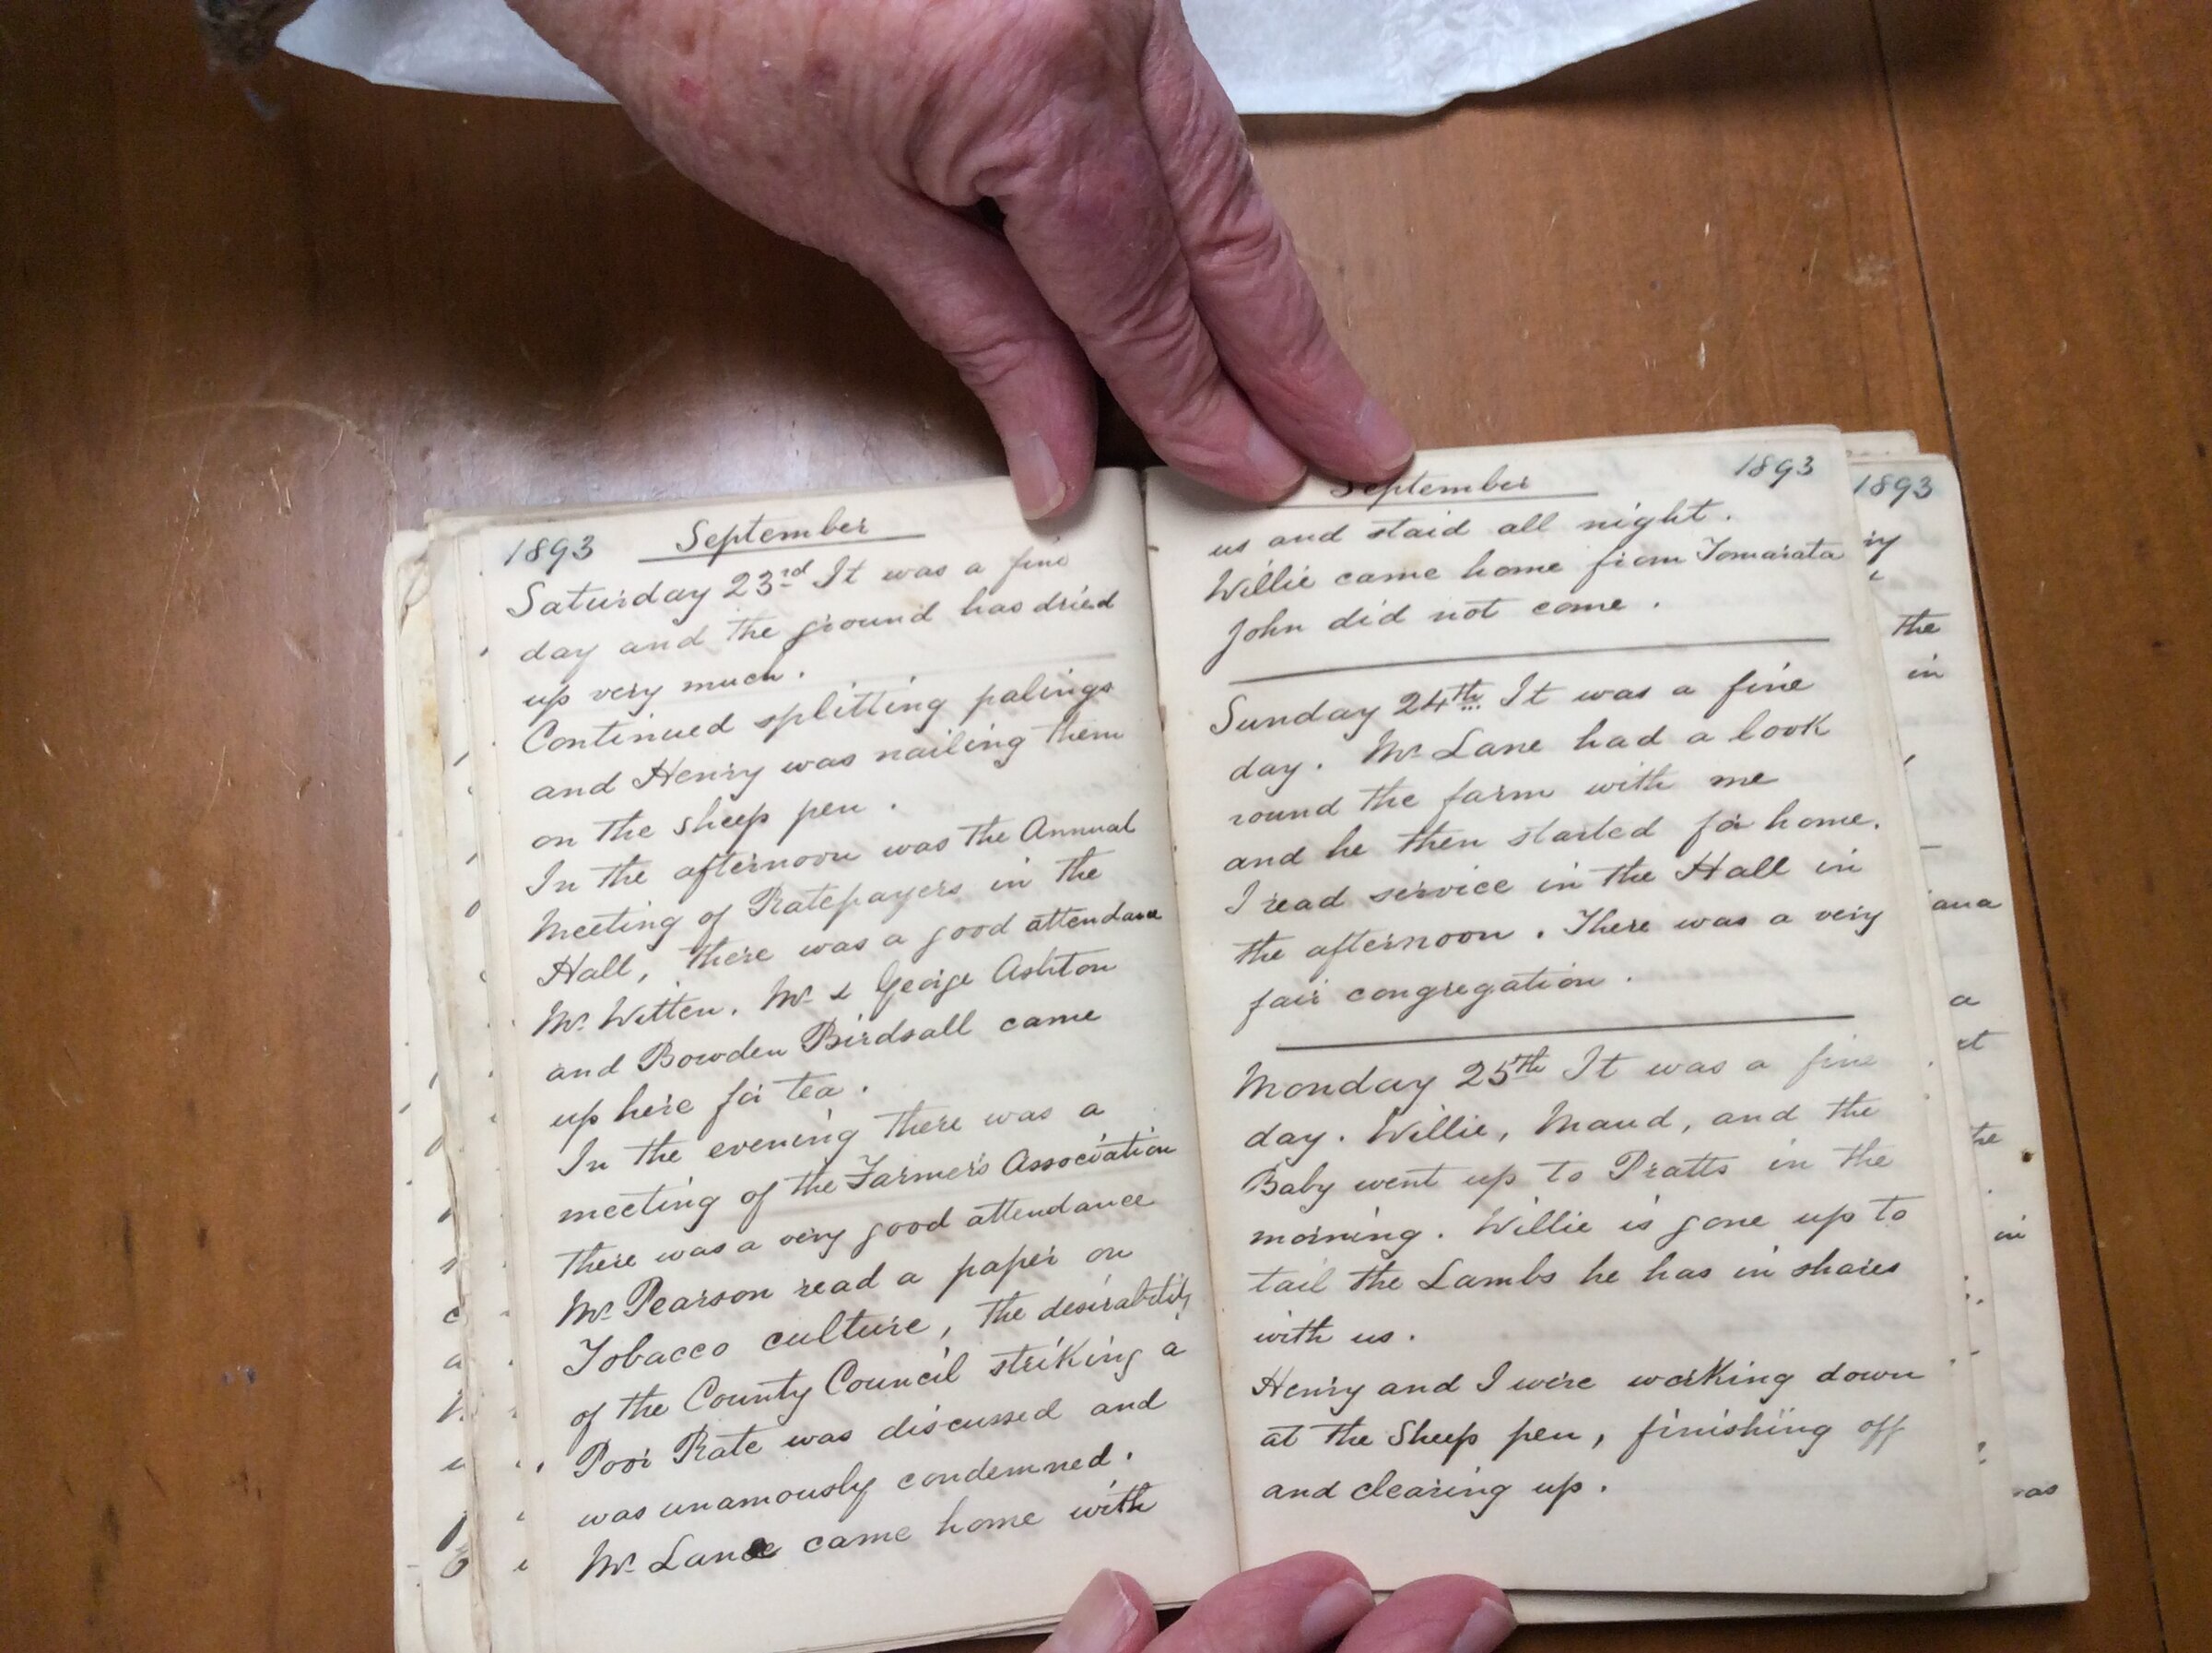 1893 September
Saturday 23rd It was a fine
day and the ground has dried
up very much.
Continued splitting palings
and Henry was nailing them
on the sheep pen.
In the afternoon was the Annual
Meeting of Ratepayers in the
Hall, there was a good attendance
Mr Witten. Mr & George Ashton
and Bowden Birdsall came
up here for tea.
In the evening there was a
meeting of the Farmer's Association
there was a very good attendance
Mr Pearson read a paper on
Tobacco culture, the desirability
of the County Council striking a
Poor Rate was discussed and
was unamously condemned.
Mr Lane came home with
September 1893
us and staid all night.
Willie came home from Tomarata
John did not come.
Sunday 24th It was a fine
day. Mr Lane had a look
round the farm with me
and he then started for home.
I read service in the Hall in
the afternoon. There was a very
fair congregation.
Monday 25th It was a fine
day. Willie, Maud, and the
Baby went up to Pratts in the
morning. Willie is gone up to
tail the Lambs he has in shares
with us.
Henry and I were working down
at the Sheep pen, finishing off
and clearing up.
1893
the
in
a
in
as